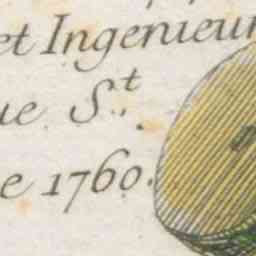 et Ingenieur
ue S.t
e 1760.